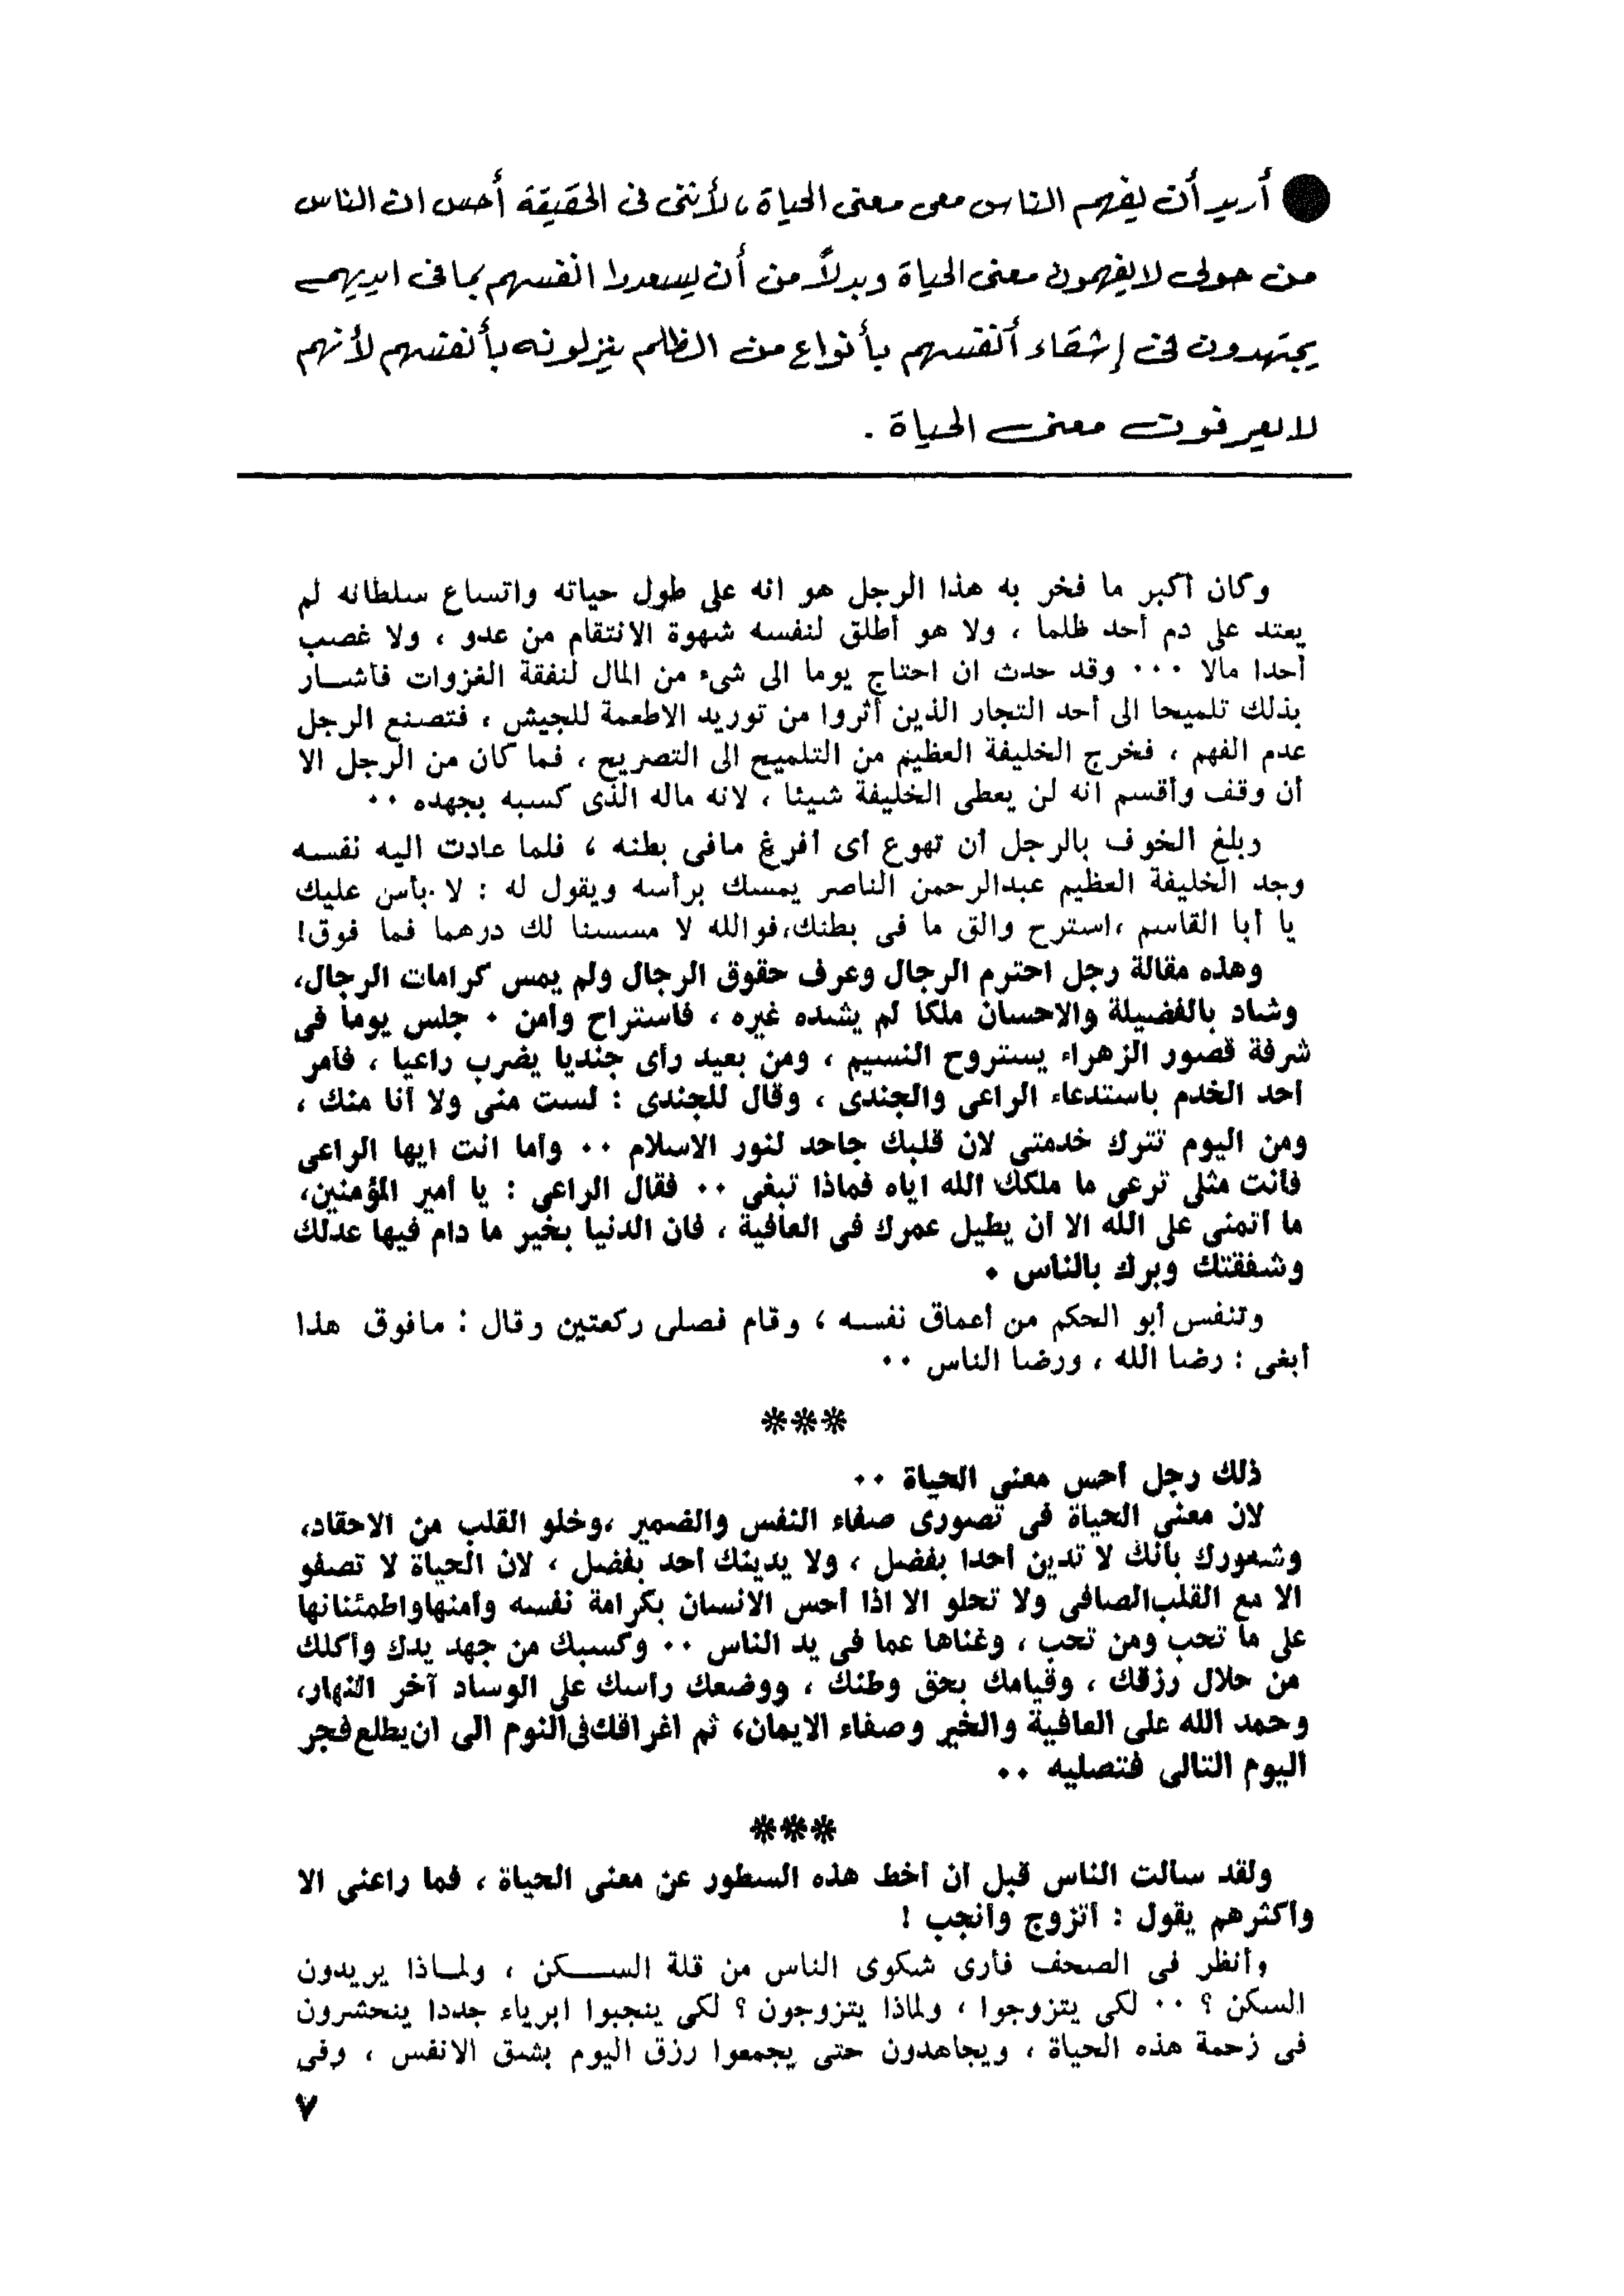 ● أريد أن يفهم الناس معى معنى الحياة ، لأننى فى الحقيقة أحس ان الناس
من حولى لا يفهمون معنى الحياة وبدلاً من أن يسعدوا انفسهم بما فى ايديهم
يجتهدون فى إشقاء أنفسهم بأنواع من الظلم ينزلونه بأنفسهم لأنهم
لا يعرفون معنى الحياة .
وكان أكبر ما فخر به هذا الرجل هو انه على طول حياته واتساع سلطانه لم
يعتد على دم أحد ظلما ، ولا هو أطلق لنفسه شهوة الانتقام من عدو ، ولا غصب
أحدا مالا ۰۰۰ وقد حدث ان احتاج يوما الى شىء من المال لنفقة الغزوات فأشار
بذلك تلميحا الى أحد التجار الذين أثروا من توريد الاطعمة للجيش ، فتصنع الرجل
عدم الفهم ، فخرج الخليفة العظيم من التلميح الى التصريح ، فما كان من الرجل الا
أن وقف وأقسم انه لن يعطى الخليفة شيئا ، لانه ماله الذى كسبه بجهده ۰۰
وبلغ الخوف بالرجل أن تهوع أى أفرغ مافى بطنه ، فلما عادت اليه نفسه
وجد الخليفة العظيم عبدالرحمن الناصر يمسك برأسه ويقول له : لا بأس عليك
يا أبا القاسم ،استرح والق ما فى بطنك،فوالله لا مسسنا لك درهما فما فوق!
وهذه مقالة رجل احترم الرجال وعرف حقوق الرجال ولم يمس كرامات الرجال،
وشاد بالفضيلة والاحسان ملكا لم يشده غيره ، فاستراح وأمن ۰ جلس يوما فى
شرفة قصور الزهراء يستروح النسيم ، ومن بعيد رأى جنديا يضرب راعيا ، فأمر
أحد الخدم باستدعاء الراعى والجندى ، وقال للجندى : لست منى ولا أنا منك ،
ومن اليوم تترك خدمتى لان قلبك جاحد لنور الاسلام ۰۰ وأما انت ايها الراعى
فأنت مثلى ترعى ما ملكك الله اياه فماذا تبغى ۰۰ فقال الراعى : يا أمير المؤمنين،
ما أتمنى على الله الا أن يطيل عمرك فى العافية ، فان الدنيا بخير ما دام فيها عدلك
وشفقتك وبرك بالناس ۰
وتنفس أبو الحكم من أعماق نفسه ، وقام فصلى ركعتين وقال : مافوق هذا
أبغى : رضا الله ، ورضا الناس ۰۰
***
ذلك رجل أحس معنى الحياة ۰۰
لان معنى الحياة فى تصورى صفاء النفس والضمير ،وخلو القلب من الاحقاد،
وشعورك بأنك لا تدين أحدا بفضل ، ولا يدينك أحد بفضل ، لان الحياة لا تصفو
الا مع القلب الصافى ولا تحلو الا اذا أحس الانسان بكرامة نفسه وأمنها واطمئنانها
على ما تحب ومن تحب ، وغناها عما فى يد الناس ۰۰ وكسبك من جهد يدك وأكلك
من حلال رزقك ، وقيامك بحق وطنك ، ووضعك رأسك على الوساد آخر النهار،
وحمد الله على العافية والخير وصفاء الايمان، ثم اغراقك فى النوم الى ان يطلع فجر
اليوم التالى فتصليه ۰۰
***
ولقد سألت الناس قبل أن أخط هذه السطور عن معنى الحياة ، فما راعنى الا
وأكثرهم يقول : أتزوج وأنجب !
وأنظر فى الصحف فأرى شكوى الناس من قلة السكن ، ولماذا يريدون
السكن ؟ ۰۰ لكى يتزوجوا ، ولماذا يتزوجون ؟ لكى ينجبوا ابرياء جددا ينحشرون
فى زحمة هذه الحياة ، ويجاهدون حتى يجمعوا رزق اليوم بشق الانفس ، وفى
٧